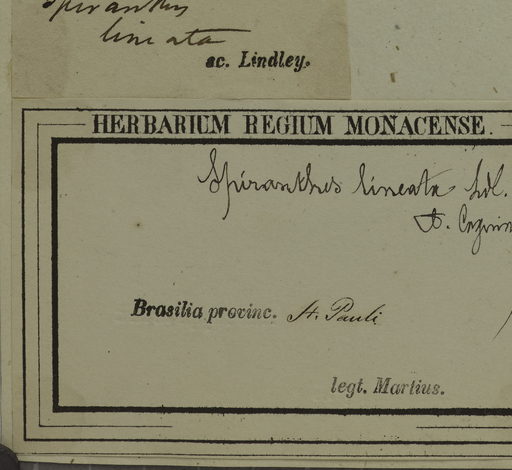 Spiranthes
lineata
ac. Lindley.
HERBARIUM REGIUM MONACENSE.
Spiranthes lineata Ldl.
Brasilia provinc. St. Pauli
legt. Martius.